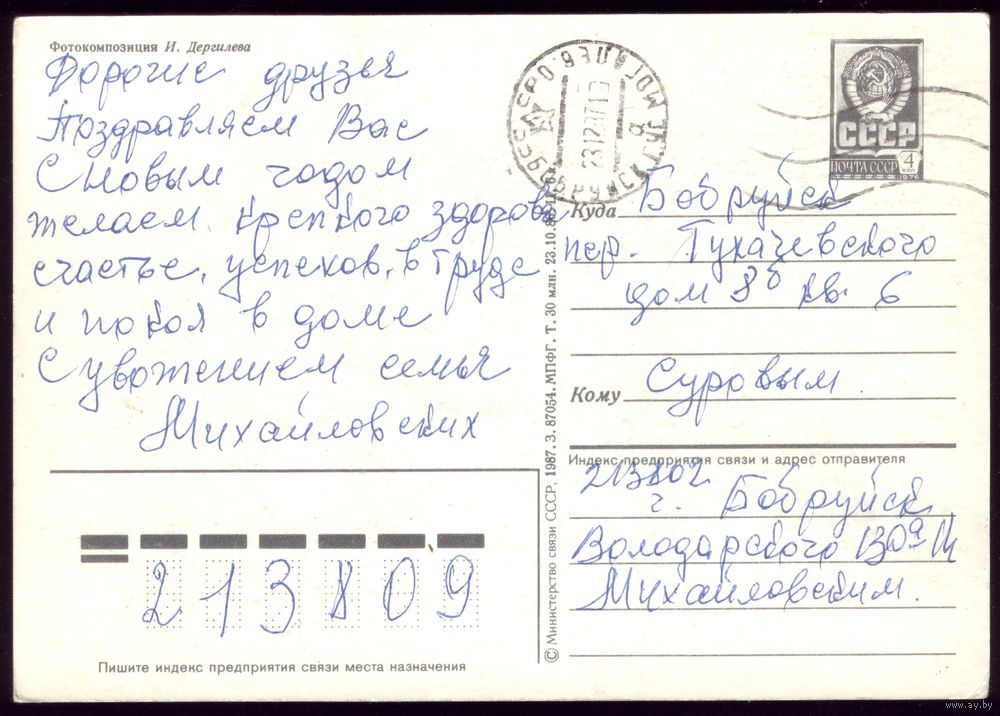 Фотокомпозиция И. Дергилева
Дорогие друзья
Поздравляем Вас
С новым годом
желаем крепкого здоровь
счастье, успехов, в труде
и покоя в доме
С уважением семья
Михайловских
СССР
ПОЧТА СССР
4 коп
1976
БОБРУЙСК
23128719
Куда Бобруйск
пер. Тухачевского
дом 8б кв 6
Кому Суровым
Индекс предприятия связи и адрес отправителя
213802
г. Бобруйск
Володарского 130а
Михайловским.
213809
Пишите индекс предприятия связи места назначения
© Министерство связи СССР, 1987. З. 87054. МПФГ. Т. 30 млн. 23.10.86
www.ay.by